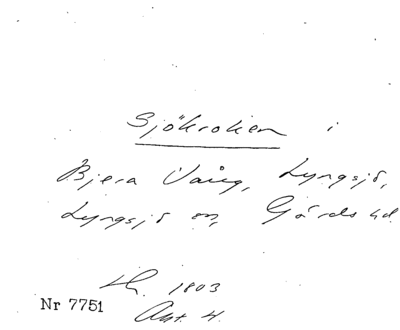 Sjökroken i
Bjera Vång, Lyngsjö,
Lyngsjö sn, Gärds hd.
LH. 1803
Akt. 4.
Nr 7751